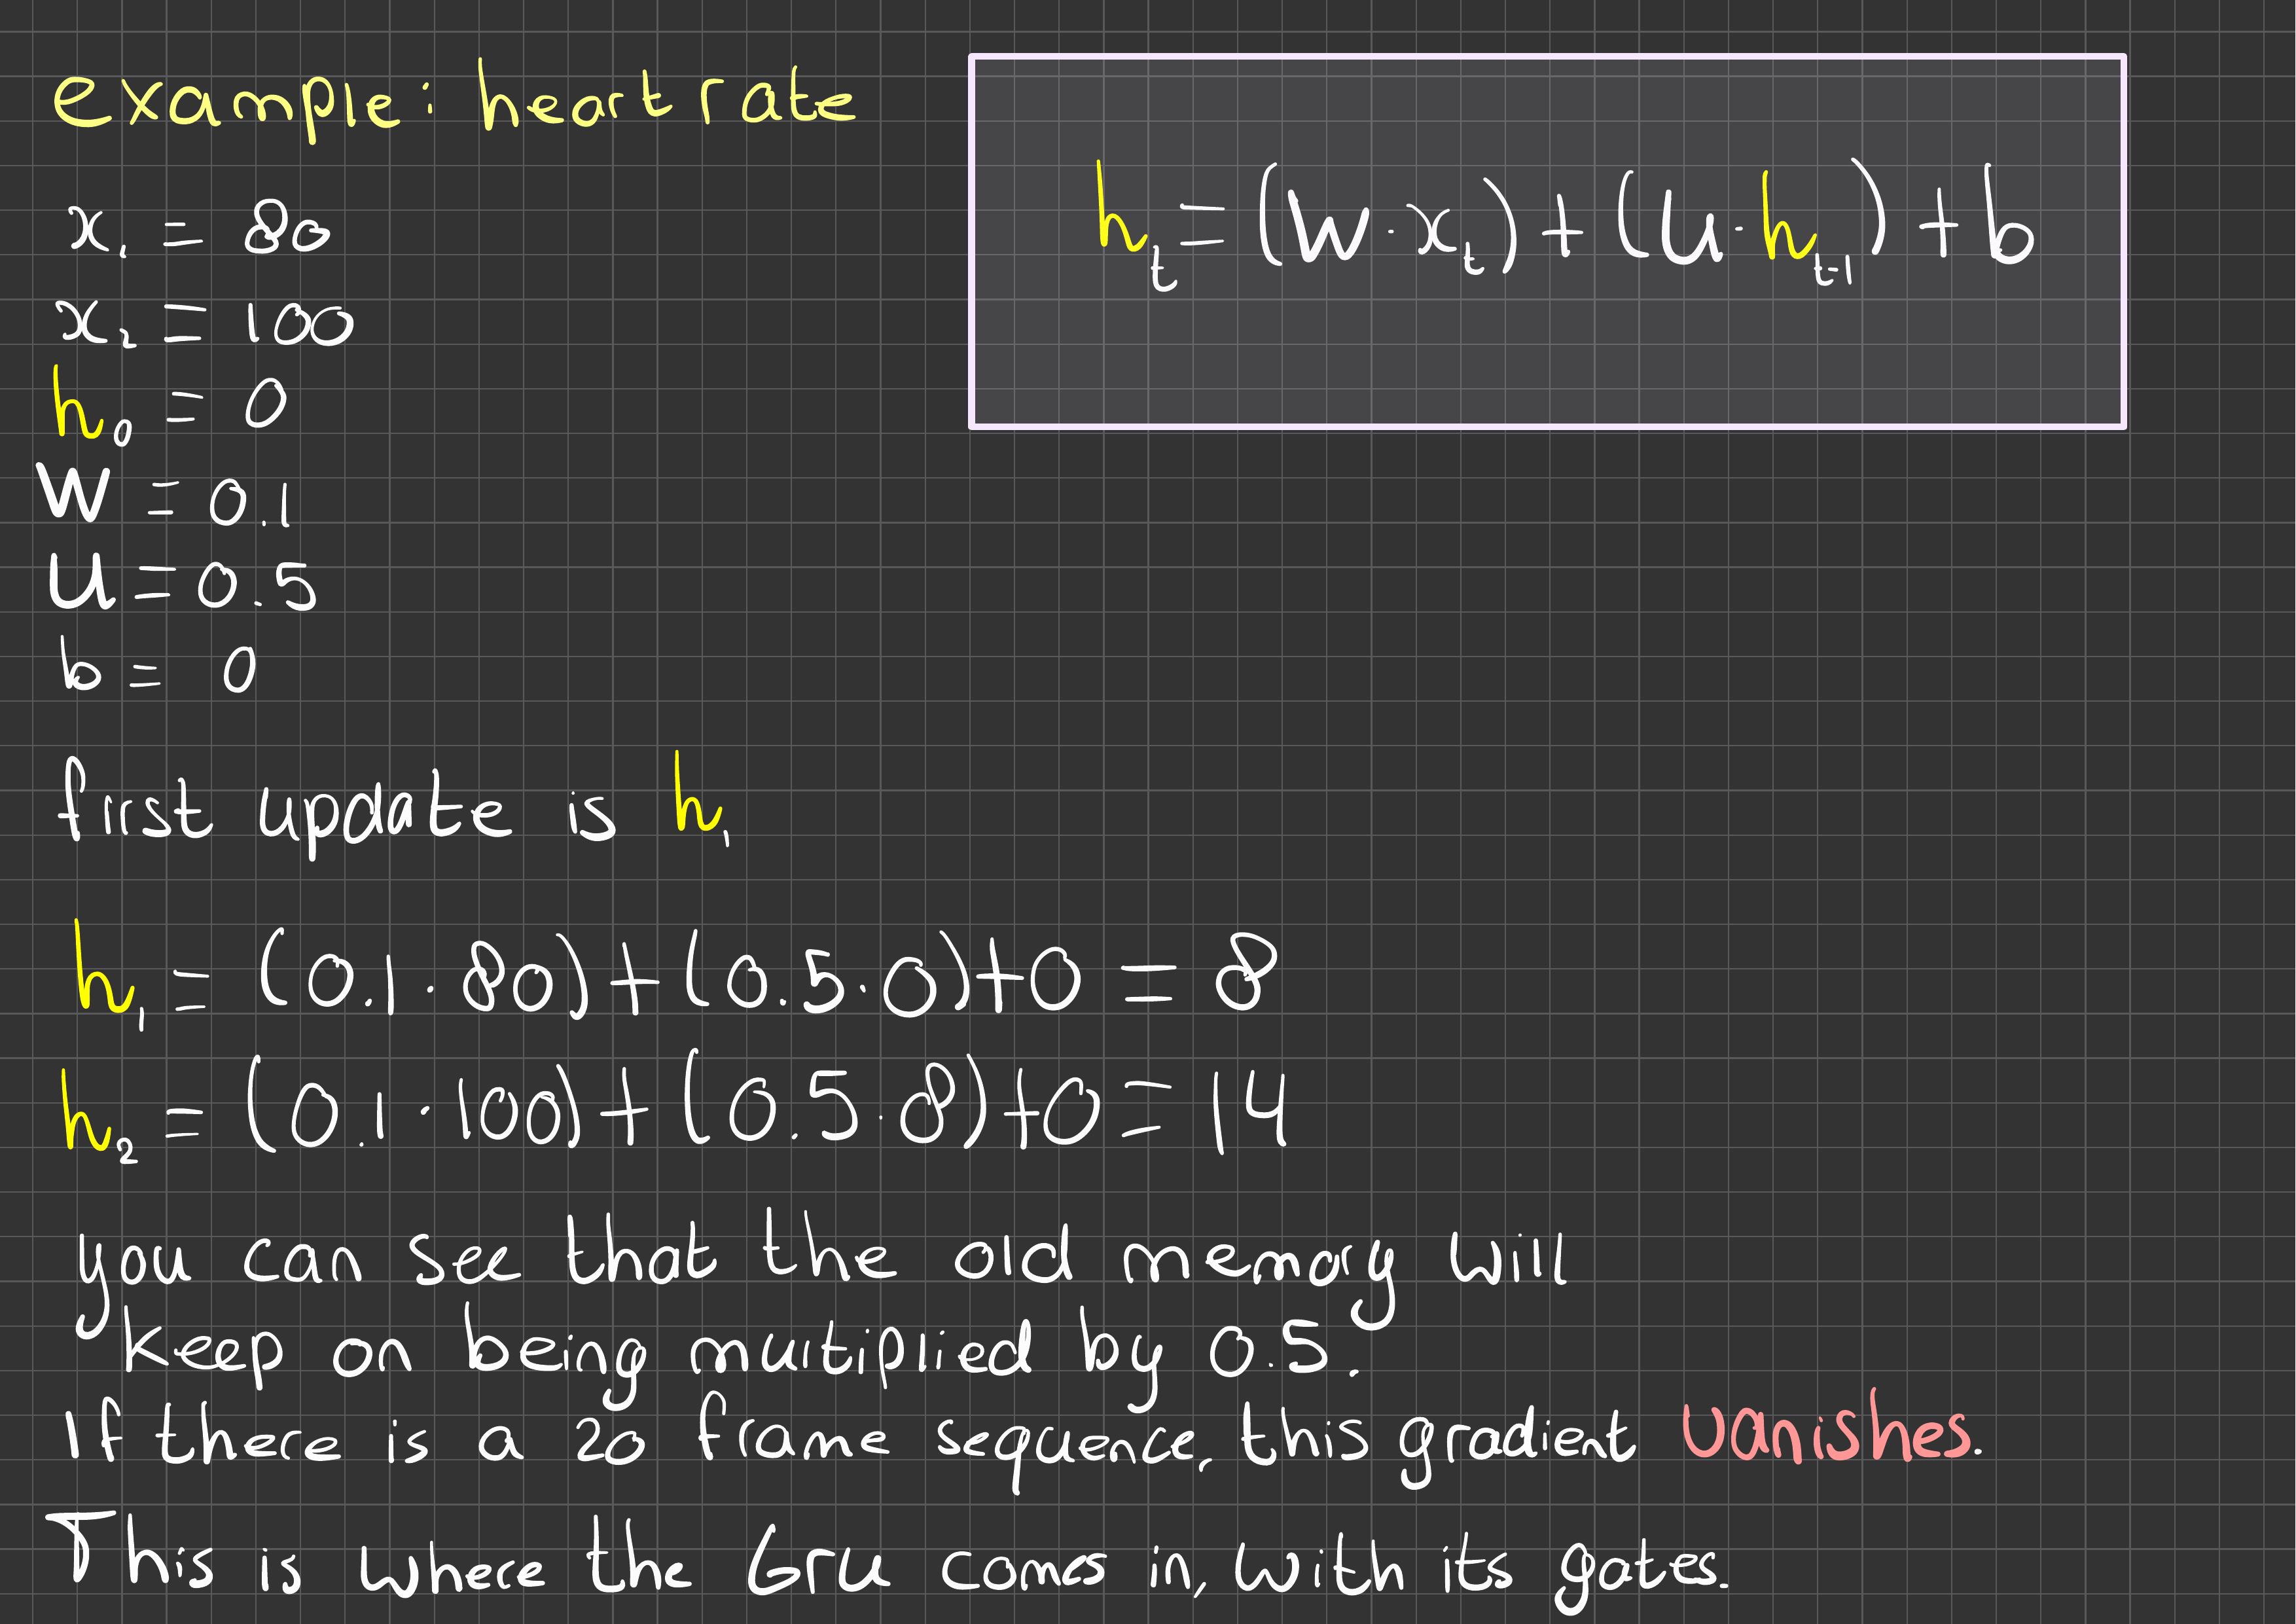 example: heart rate
hₜ = (W · xₜ) + (U · hₜ₋₁) + b
x₁ = 80
x₂ = 100
h₀ = 0
W = 0.1
U = 0.5
b = 0
first update is h₁
h₁ = (0.1 · 80) + (0.5 · 0) + 0 = 8
h₂ = (0.1 · 100) + (0.5 · 8) + 0 = 14
you can see that the old memory will
keep on being multiplied by 0.5.
If there is a 20 frame sequence, this gradient vanishes.
This is where the Gru comes in, with its gates.